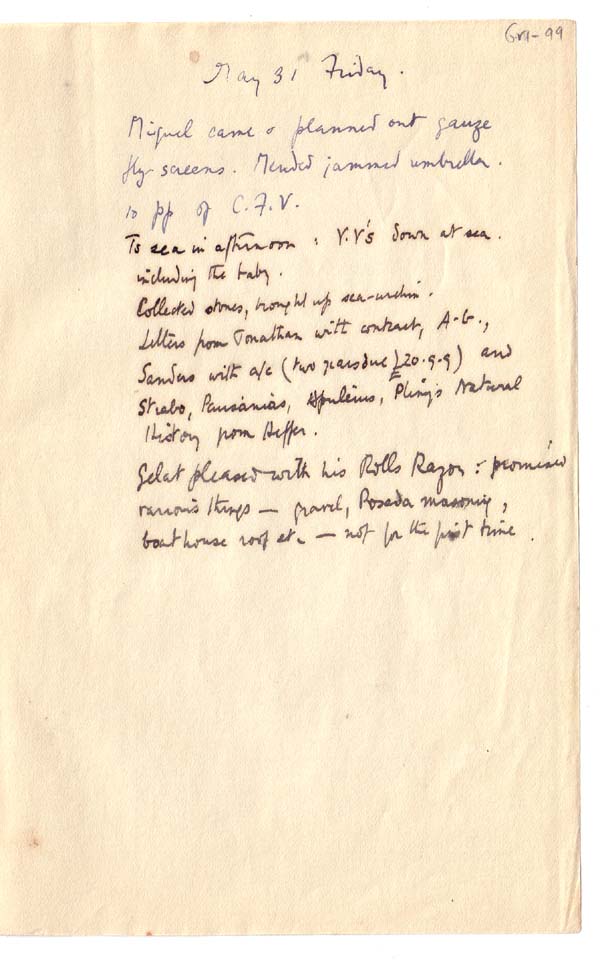 Gra-99
May 31 Friday.
Miguel came & planned out gauze
fly-screens. Mended jammed umbrella.
10 pp of C.F.V.
To sea in afternoon : V.V's down at sea.
including the baby.
Collected stones, brought up sea-urchin.
Letters from Jonathan with contract, A-G.,
Sanders with a/c (two years due) £20.9.9) and
Strabo, Pausanias, Apuleius, Pliny's Natural
History from Heffer.
Gelat pleased with his Rolls Razor : promised
various things — gravel, Posada masonry,
boat house roof etc — not for the first time.